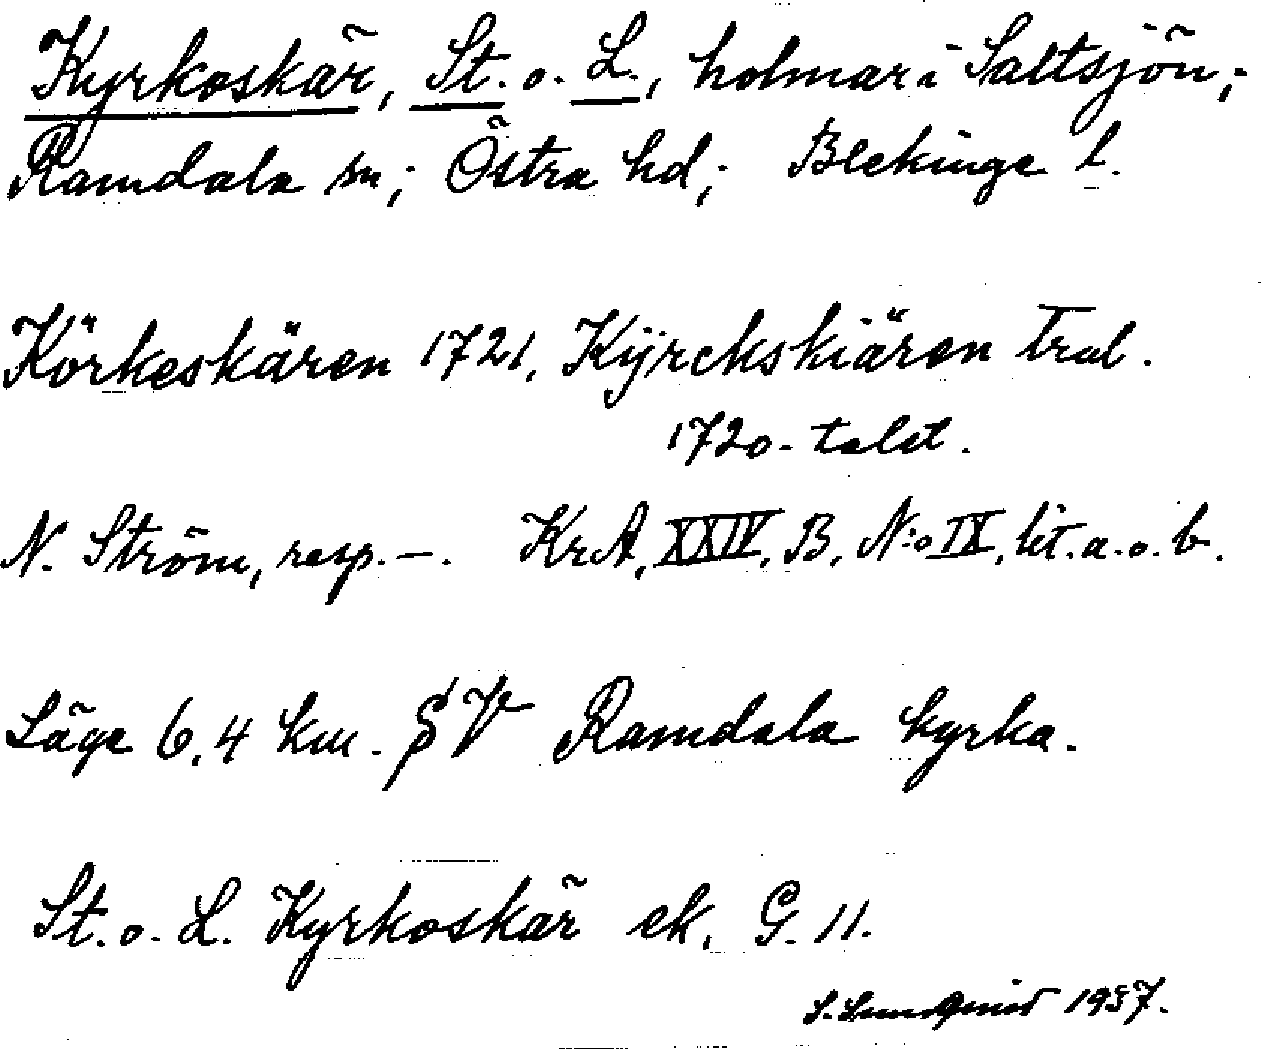 Kyrkoskär, St. o. L., holmar i Saltsjön;
Ramdala sn; Östra hd; Blekinge l.
Körkeskären 1721, Kÿrckskiären trol.
1720-talet.
N. Ström, resp. –. KrA, XXIV, B, N:o IX, lit. a. o. b.
Läge 6,4 km. SV Ramdala kyrka.
St. o. L. Kyrkoskär ek. G. 11.
S. Lundqvist 1937.